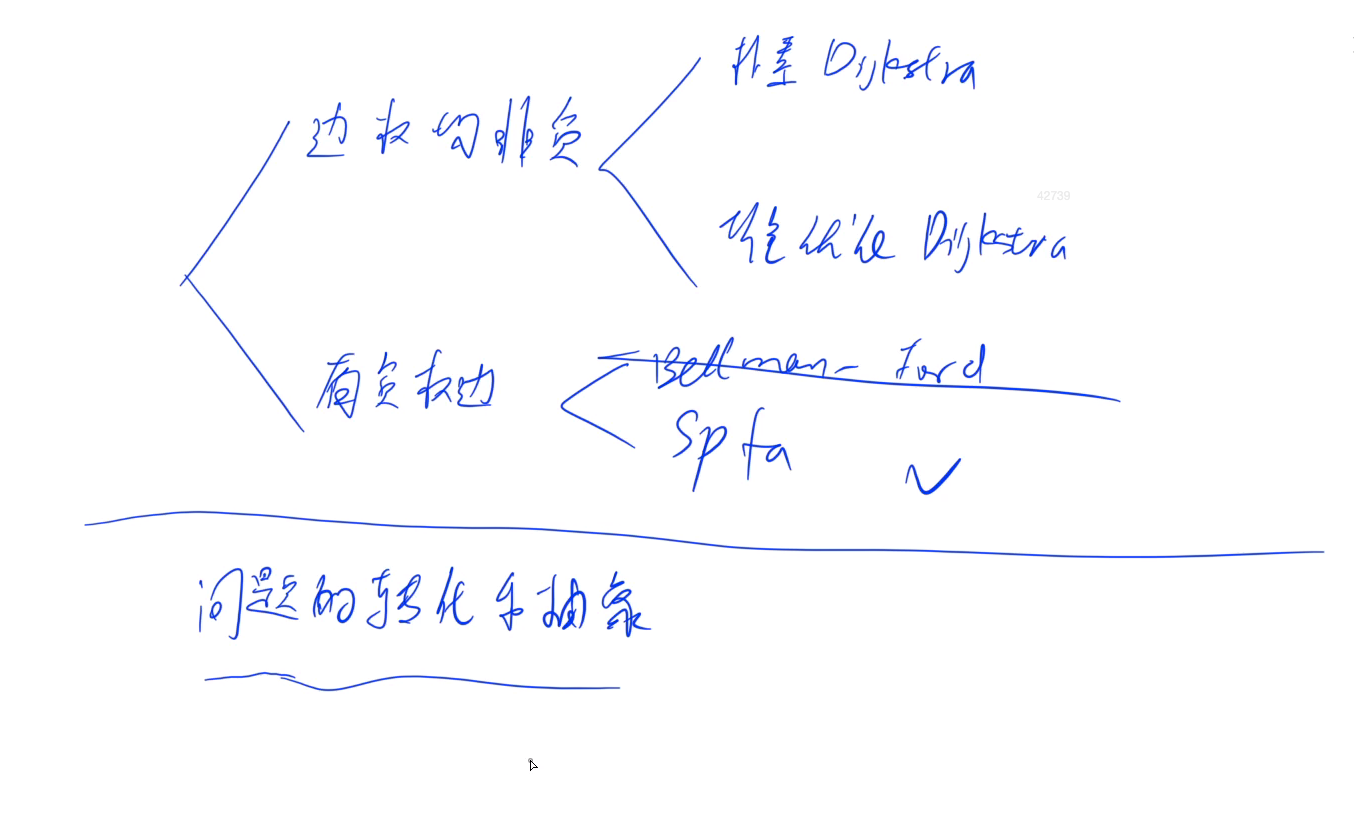 朴素 Dijkstra
边权均非负
42739
堆优化 Dijkstra
Bellman-Ford
有负权边
spfa
问题的转化和抽象